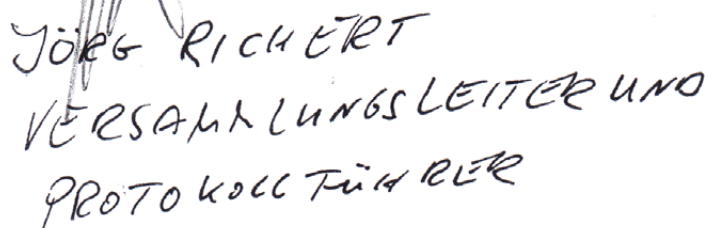 JÖRG RICHERT
VERSAMMLUNGSLEITER UND
PROTOKOLLFÜHRER